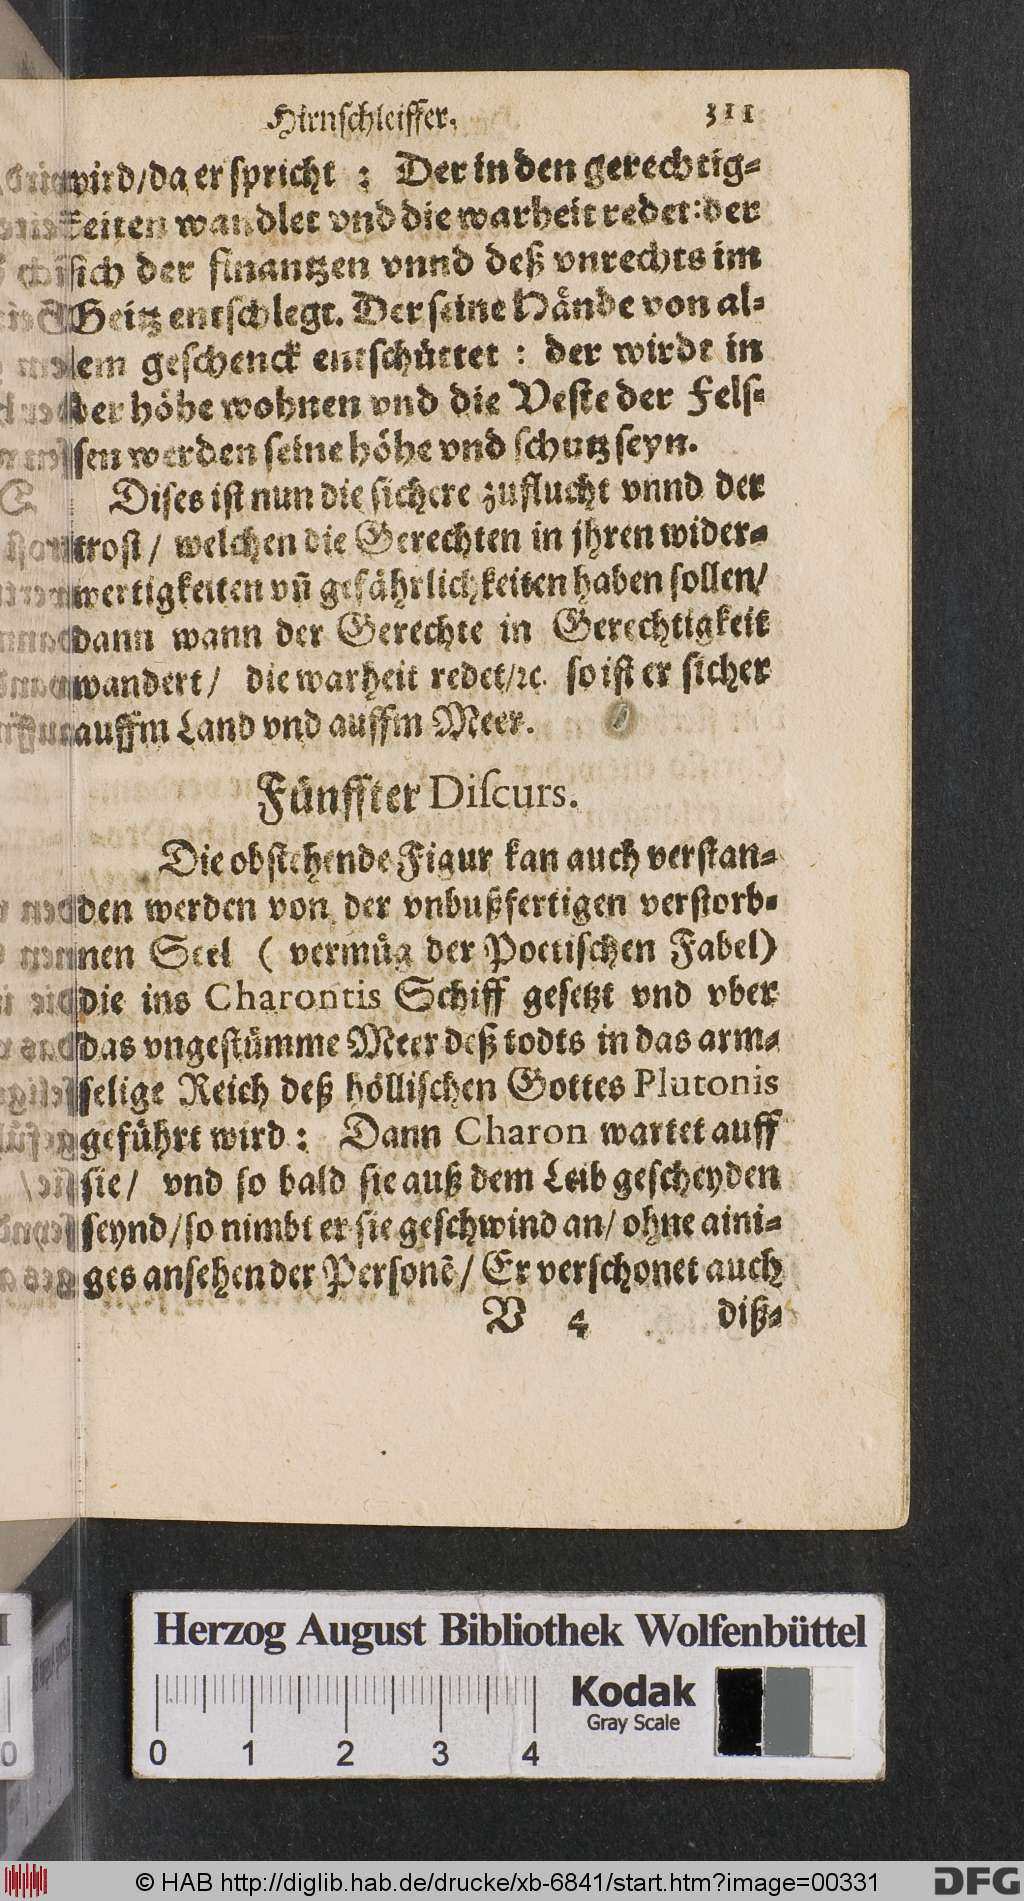 Hirnschleiffer. 311
wird/da er spricht : Der in den gerechtig-
keiten wandlet vnd die warheit redet: der
sich der finantzen vnnd deß vnrechts im
Geitz entschlegt. Der seine Hände von al-
lem geschenck entschüttet : der wirdt in
der höhe wohnen vnd die Veste der Fels-
sen werden seine höhe vnd schutz seyn.
Dises ist nun die sichere zuflucht vnnd der
trost / welchen die Gerechten in jhren wider-
wertigkeiten vñ gefährlichkeiten haben sollen/
dann wann der Gerechte in Gerechtigkeit
wandert / die warheit redet/ꝛc. so ist er sicher
auffm Land vnd auffm Meer.
Fünffter Discurs.
Die obstehende Figur kan auch verstan-
den werden von der vnbußfertigen verstorb-
nen Seel ( vermüg der Poetischen Fabel)
die ins Charontis Schiff gesetzt vnd vber
das vngestümme Meer deß todts in das arm-
selige Reich deß höllischen Gottes Plutonis
geführt wird : Dann Charon wartet auff
sie / vnd so bald sie auß dem Leib gescheyden
seynd/so nimbt er sie geschwind an/ ohne aini-
ges ansehen der Personẽ / Er verschonet auch
V 4 diß-
Herzog August Bibliothek Wolfenbüttel
Kodak
Gray Scale
0 1 2 3 4
© HAB http://diglib.hab.de/drucke/xb-6841/start.htm?image=00331
DFG